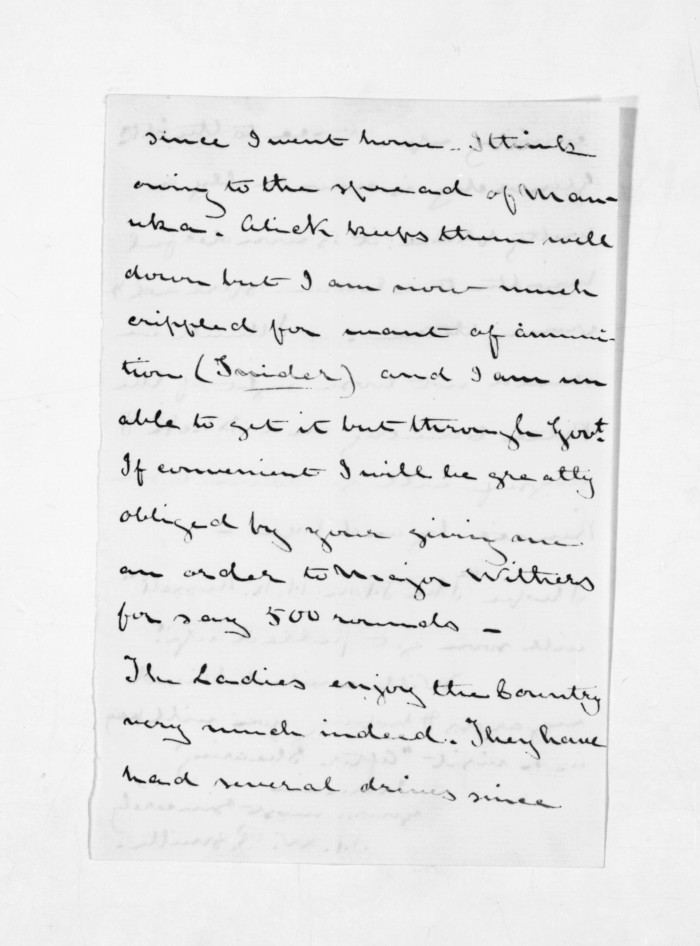 since I went home. I think
owing to the spread of Man-
uka. Alick keeps them well
down but I am now much
crippled for want of ammuni-
tion (Snider) and I am un
able to get it but through Govt.
If convenient I will be greatly
obliged by your giving me
an order to Major Withers
for say 500 rounds —
The Ladies enjoy the Country
very much indeed. They have
had several drives since